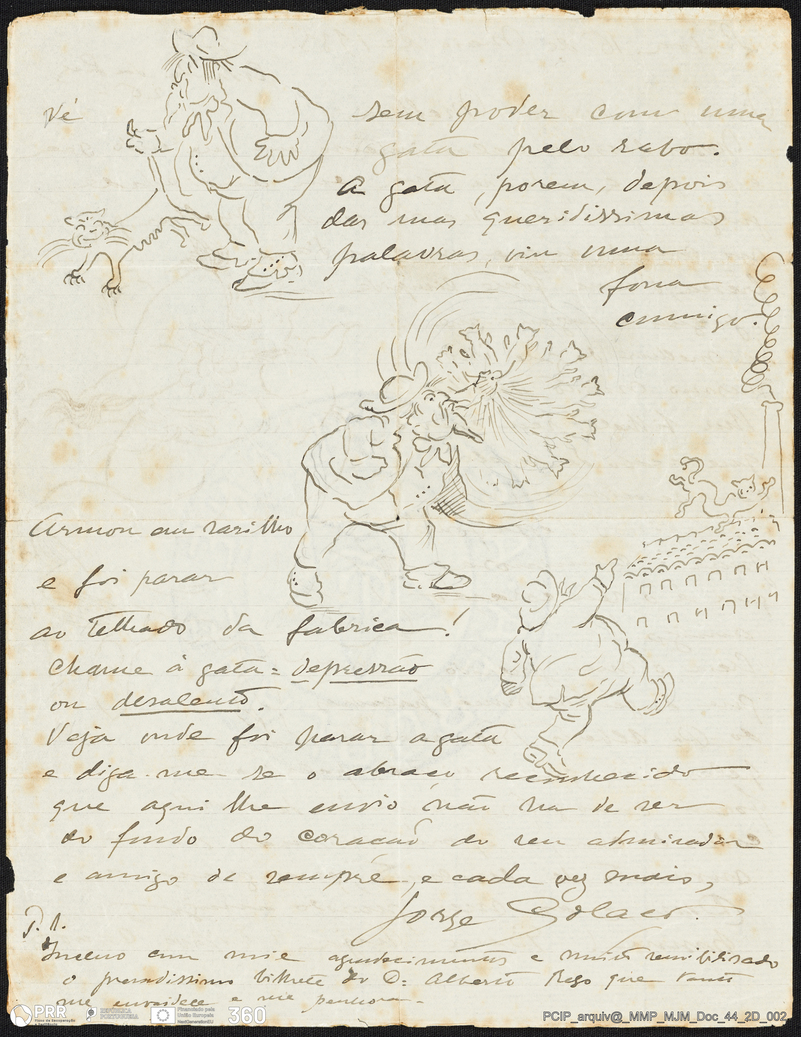 Vê
sem poder com uma
gata pelo rabo.
A gata, porem, depois
das suas queridissimas
palavras, viu uma
fona
comigo.
Armou um sarilho
e foi parar
ao telhado da fabrica!
Chame à gata = depressão
ou desalento.
Veja onde foi parar a gata
e diga-me se o abraço reconhecido
que aqui lhe envio não ha de ser
do fundo do coração do seu admirador
e amigo de sempre, e cada vez mais,
Jorge Colaço.
P.S.
com mil agradecimentos e muito sensibilisado
o bilhete do D. Alberto Rego que tanto
me envaidece e me penhora.
PRR
REPÚBLICA
PORTUGUESA
Financiado pela
União Europeia
NextGenerationEU
360
PCIP_arquiv@_MMP_MJM_Doc_44_2D_002